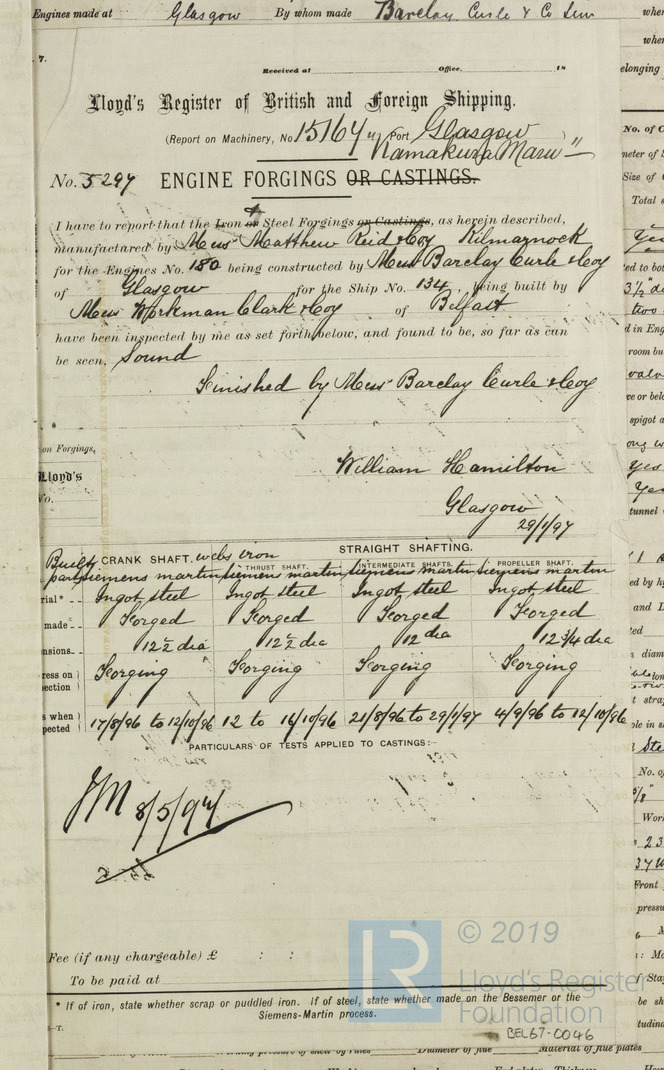 Engines made at Glasgow By whom made Barclay Curle & Co Lim
7.
Received at Office. 18
Lloyd's Register of British and Foreign Shipping.
(Report on Machinery, No 15164 Port Glasgow)
"Kamakura Maru"
No. 5297 ENGINE FORGINGS OR CASTINGS.
I have to report that the Iron or Steel Forgings or Castings, as herein described,
manufactured by Messrs Matthew Reid & Coy Kilmarnock
for the Engines No. 180 being constructed by Messrs Barclay Curle & Coy
of Glasgow for the Ship No. 134, being built by
Messrs Workman Clark & Coy of Belfast
have been inspected by me as set forth below, and found to be, so far as can
be seen, Sound
Finished by Messrs Barclay Curle & Coy
on Forgings,
Lloyd's
No.
William Hamilton
Glasgow
29/1/97
Built CRANK SHAFT. webs iron STRAIGHT SHAFTING.
THRUST SHAFT. INTERMEDIATE SHAFTS. PROPELLER SHAFT.
parts siemens martin siemens martin siemens martin siemens martin
rial* Ingot steel Ingot steel Ingot steel Ingot steel
made Forged Forged Forged Forged
nsions 12½ dia 12½ dia 12 dia 12 3/4 dia
ress on
ection Forging Forging Forging Forging
s when
pected 17/8/96 to 12/10/96 12 to 16/10/96 21/8/96 to 29/1/97 4/9/96 to 12/10/96
PARTICULARS OF TESTS APPLIED TO CASTINGS:-
JM 8/5/97
Fee (if any chargeable) £ : :
To be paid at
* If of iron, state whether scrap or puddled iron. If of steel, state whether made on the Bessemer or the
Siemens-Martin process.
-T.
LR © 2019
Lloyd's Register
Foundation
BEL67-0046
Working pressure of shell by rules Diameter of flue Material of flue plates